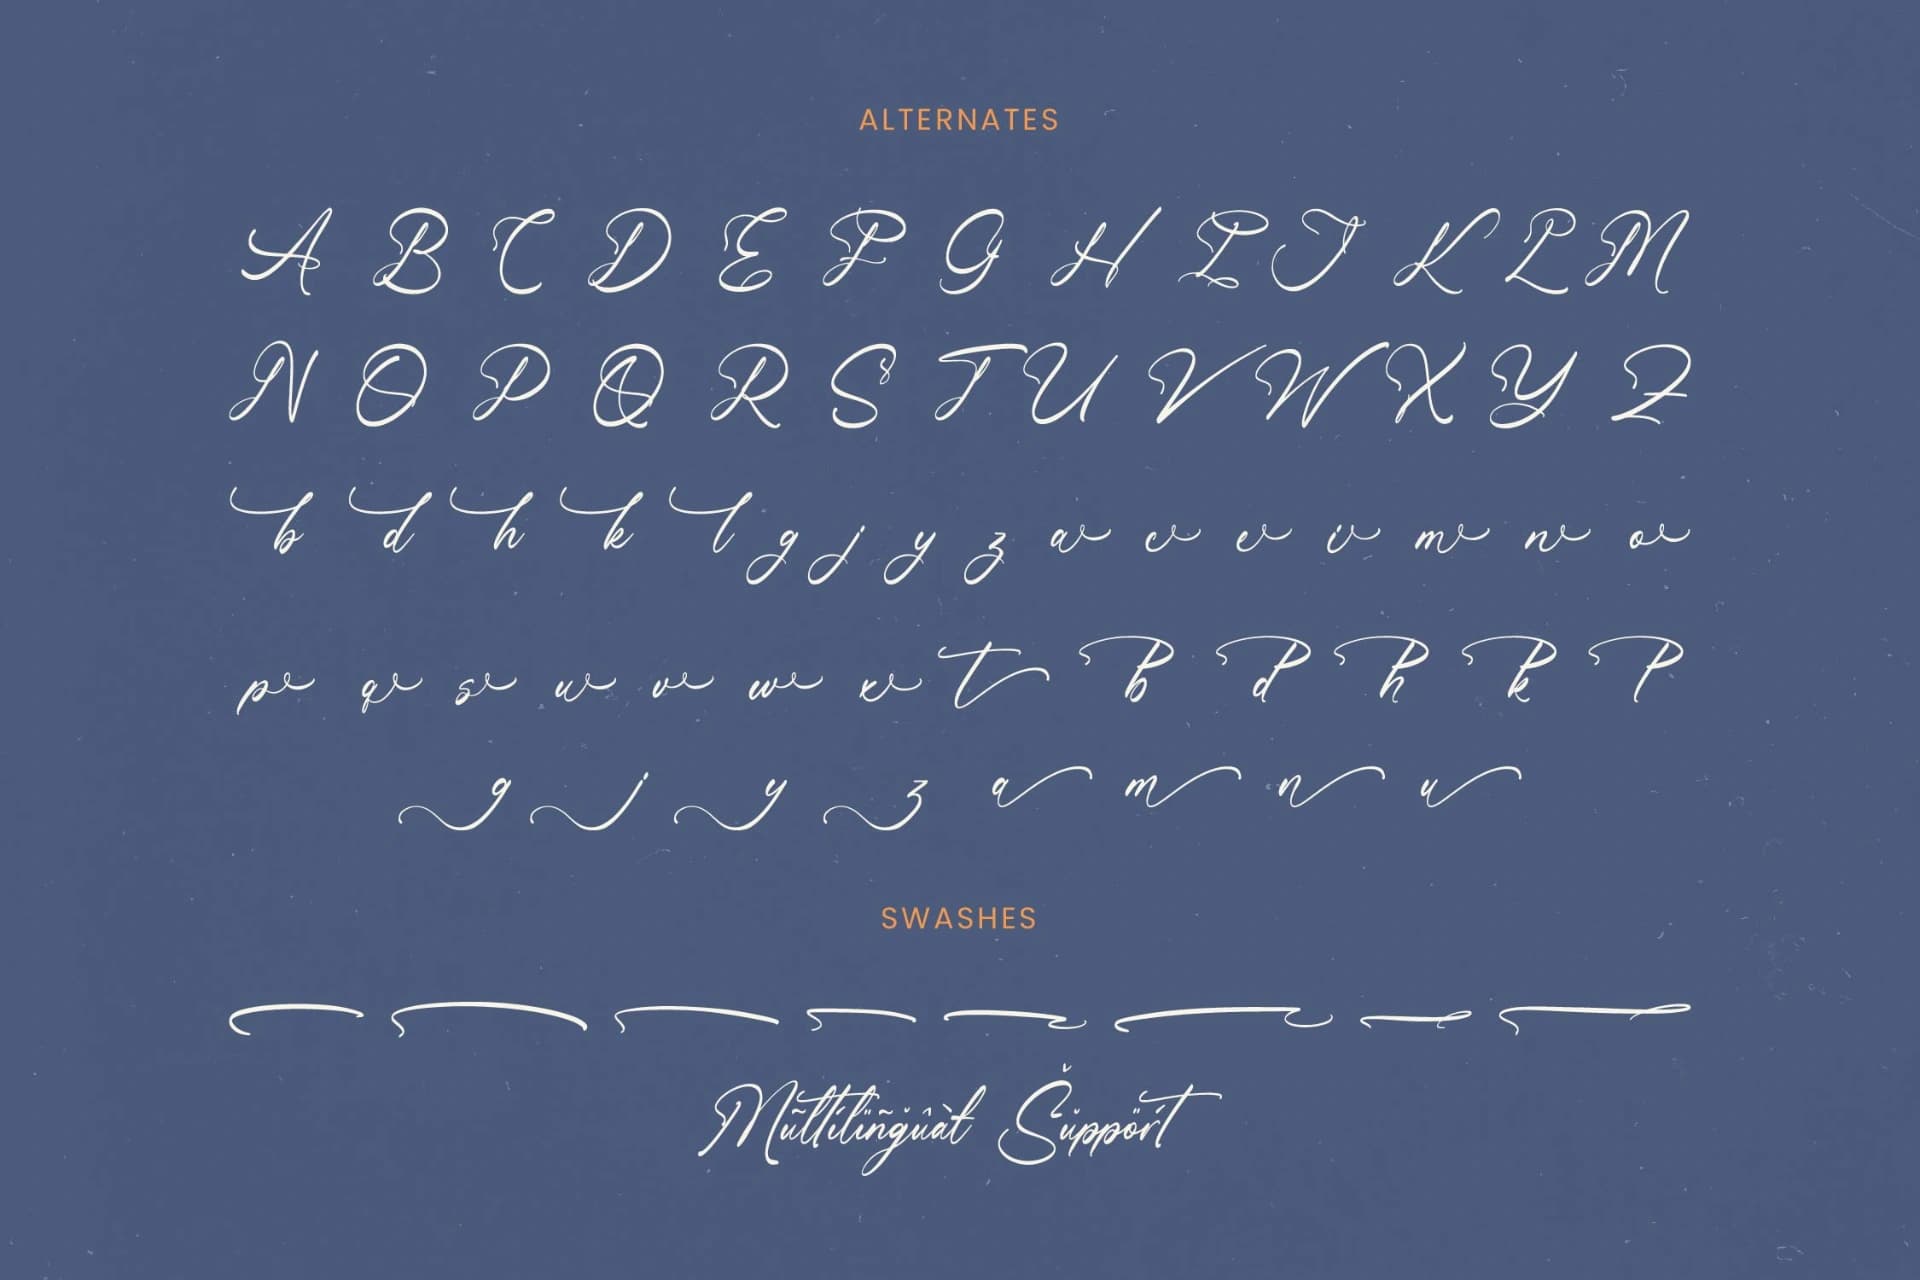 ALTERNATES
A B C D E F G H I J K L M
N O P Q R S T U V W X Y Z
b d h k l g j y z a c e i m n o
p q s u v w x t b d h k l
g j y z a m n u
SWASHES
Mũltílïñğûàł Šŭppöŕt